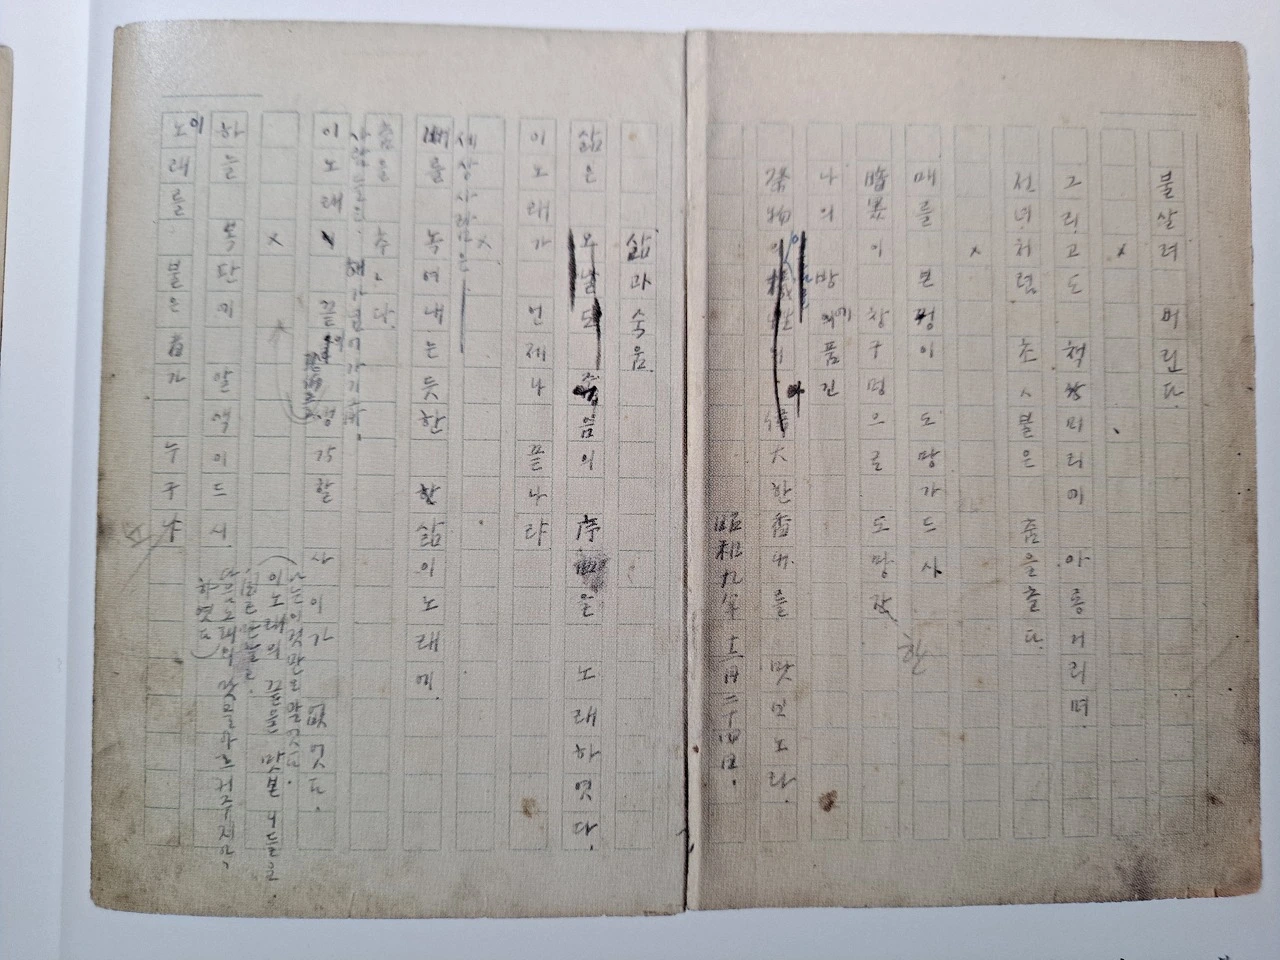 불살려 버린다.
×
그리고도 책상머리에 아롱거리며
선녀처럼 초ㅅ불은 춤을춘다.
×
매를 본꿩이 도망가드시
暗黑이 창구멍으로 도망간
나의 방에품긴
祭物의 偉大한香내를 맛보노라.
昭和九年十二月二十四日.
삶과죽음.
삶은 오날도 죽음의 序曲을 노래하엿다.
이노래가 언제나 끝나랴
×
세상사람은
뼈를 녹여내는듯한 삶의노래에
춤을 추ㄴ다.
사람들은 해가넘어가기前
이노래 끝의 생각할 사이가 업엇다.
(나는 이것만은 알엇다.
이노래의 끝을 맛본 니들은
자기만알고,
다음노래의 맛을 알으켜주지안
하엿다)
×
하늘 복판에 알색이드시
이노래를 불은者가 누구냐